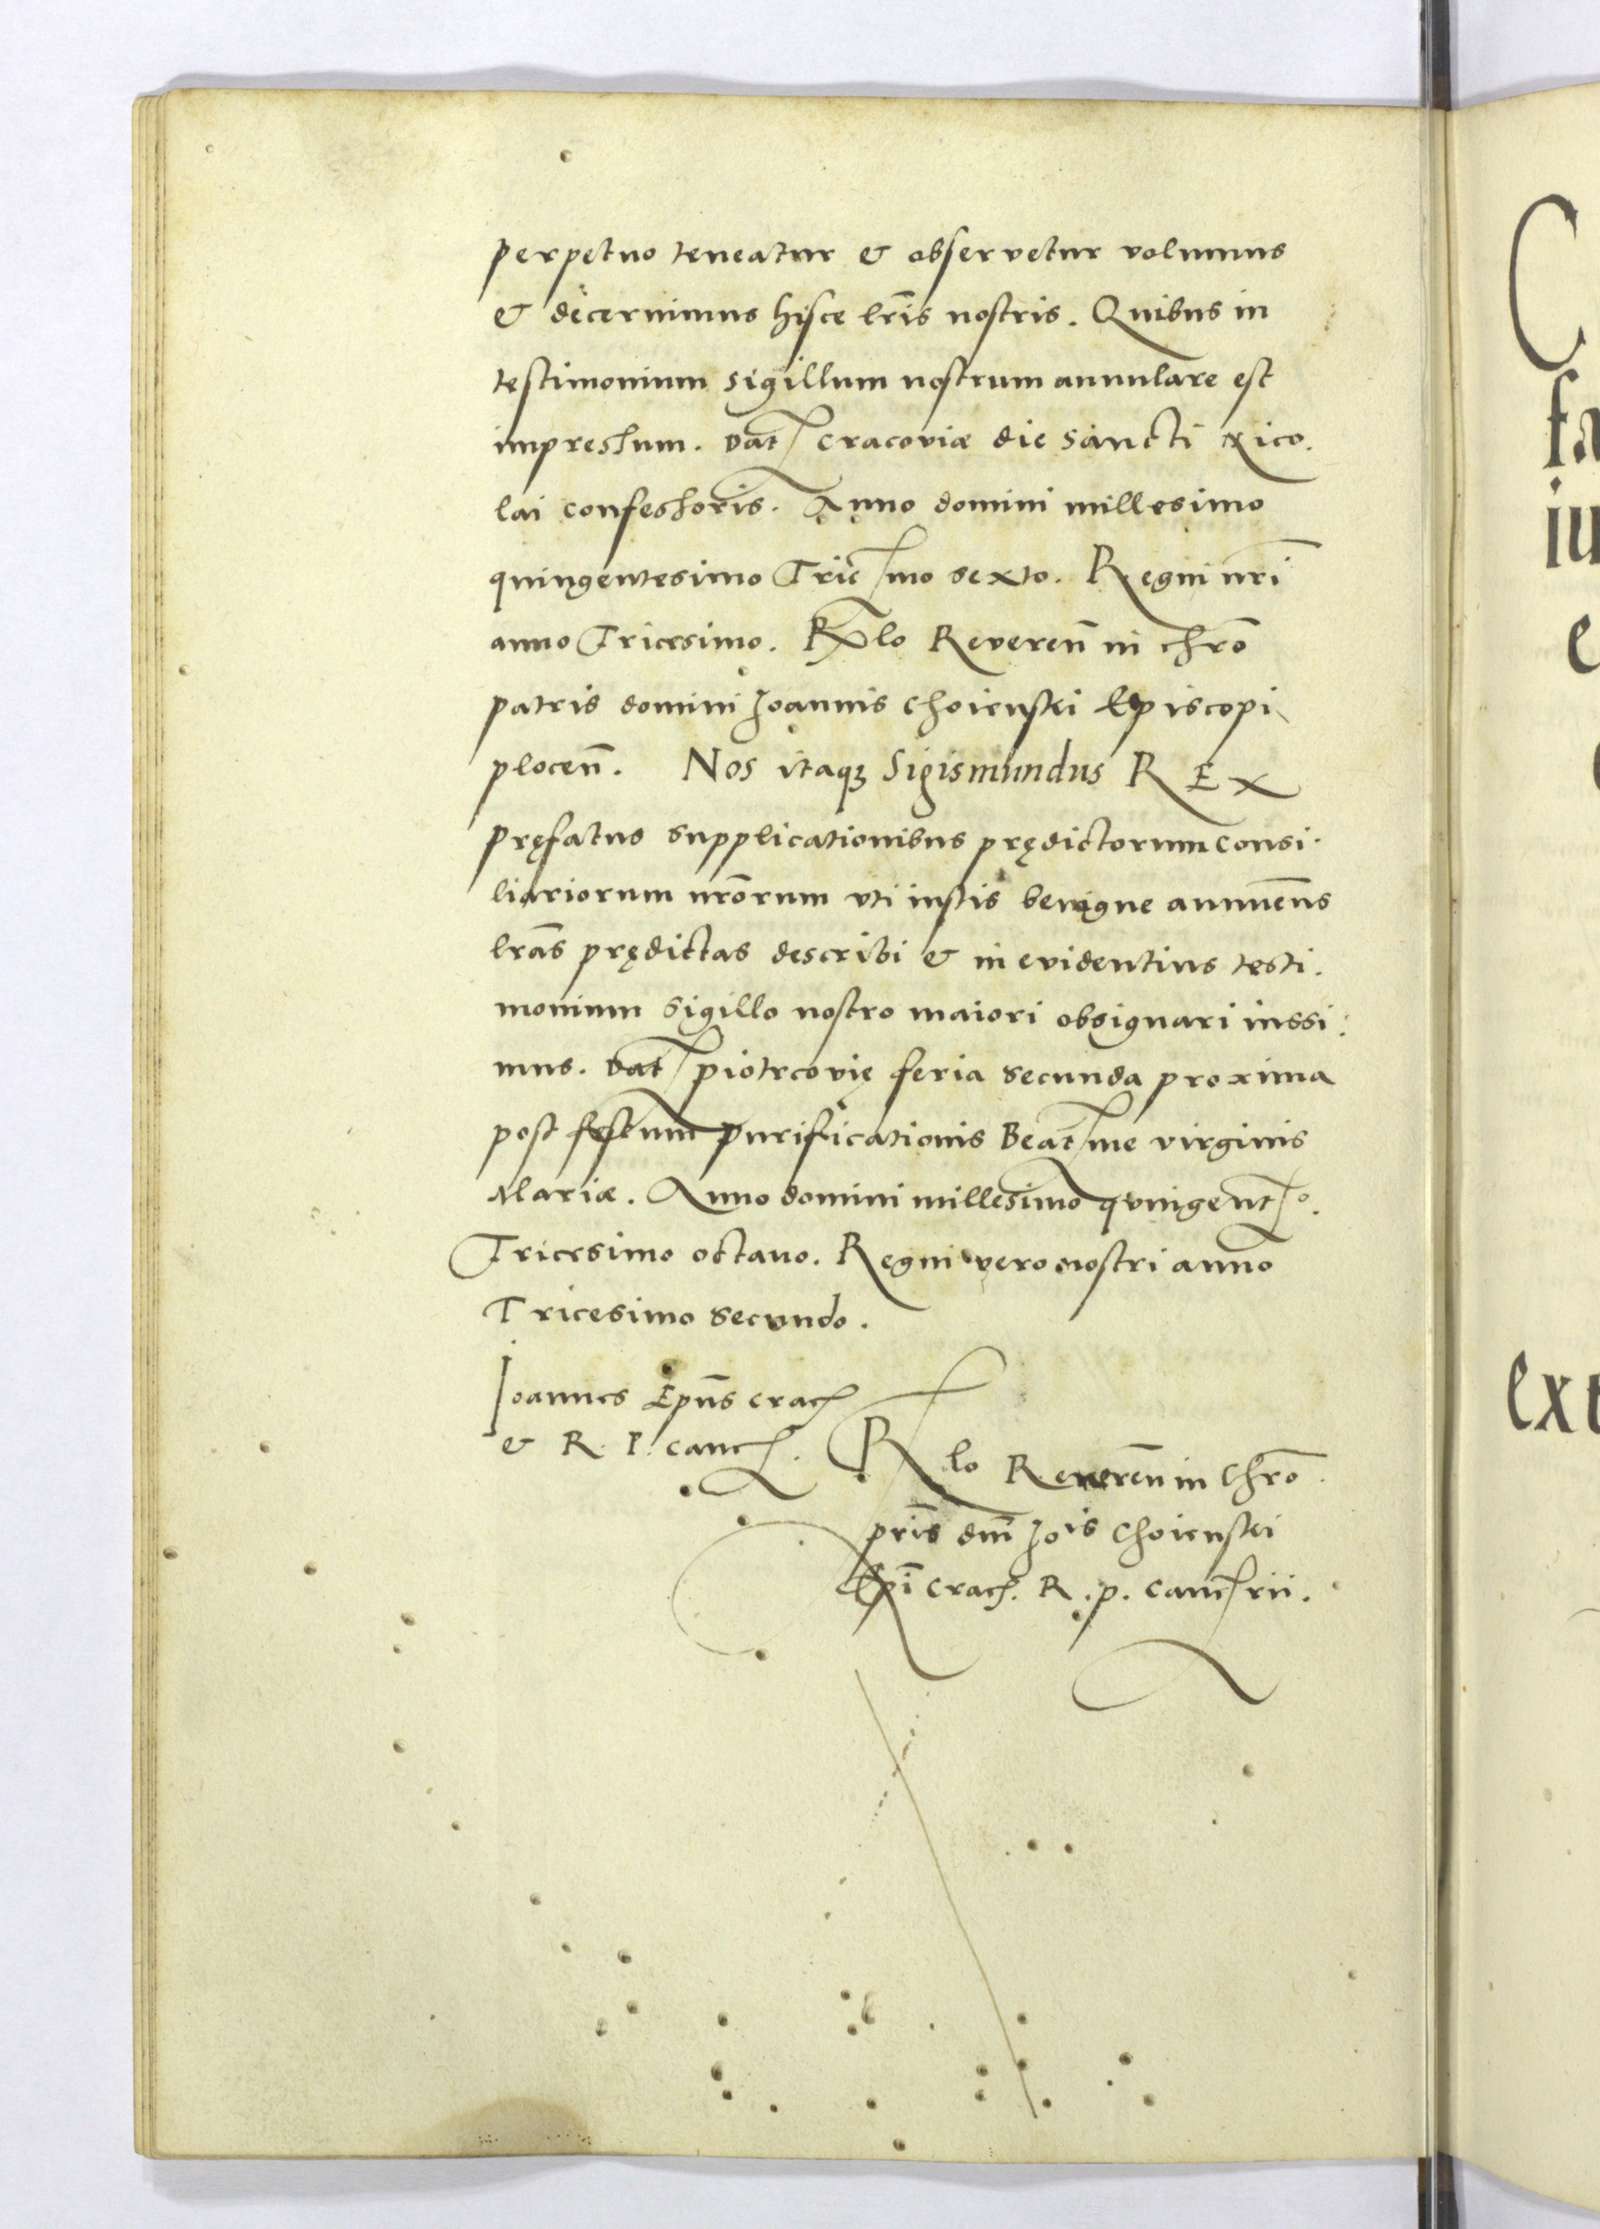 perpetuo teneatur & observetur volumus
& decernimus hisce lr̃is nostris. Quibus in
testimonium sigillum nostrum annulare est
impressum. Dat̃ Cracoviæ die Sancti Nico.
lai confessoris. Anno domini millesimo
quingentesimo Tric̃mo sexto. Regni nr̃i
anno Tricesimo. R̃lo Reveren̄ in chr̃o
patris domini Joannis Choienski Episcopi
plocen̄. Nos itaqꝫ Sigismundus REX
pręfatus supplicationibus prędictorum consi.
liariorum nr̃orum uti iustis benigne annuen̄s
lr̃as prędictas describi & in evidentius testi.
monium sigillo nostro maiori obsignari iussi.
mus. Dat̃ piotrcovię feria secunda proxima
post festum purificationis Beat̃me virginis
Mariæ. Anno domini millesimo quingent̃o.
Tricesimo octavo. Regni vero nostri anno
Tricesimo secundo.
Joannes Ep̃us crac̃
& R. P. canc̃.
R̃lo Reveren̄ in Chr̃o.
pr̃is dn̄i Jois Choienski
Ep̃i crac̃. R. p. canc̃rii.
C
fa
iu
e
ext